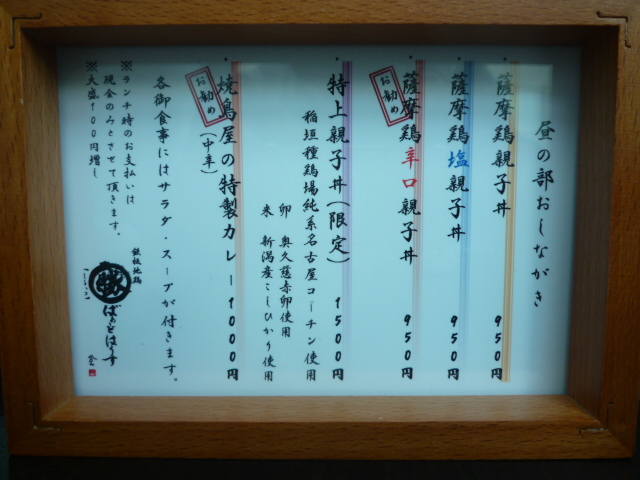 昼の部おしながき
・薩摩鶏親子丼 950円
・薩摩鶏塩親子丼 950円
お勧め
・薩摩鶏辛口親子丼 950円
・特上親子丼(限定) 1500円
稲垣種鶏場純系名古屋コーチン使用
卵 奥久慈赤卵使用
米 新潟産こしひかり使用
お勧め
・焼鳥屋の特製カレー 1000円
(中辛)
各御食事にはサラダ・スープが付きます。
※ランチ時のお支払いは
現金のみとさせて頂きます。
※大盛100円増し
ばぁどはうす